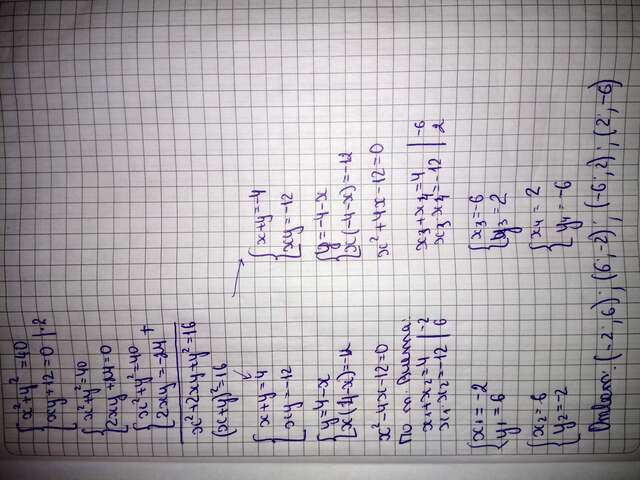 {x²+y²=40
{xy+12=0 |·2
{x²+y²=40
{2xy+24=0
{x²+y²=40
{2xy=-24 +
x²+2xy+y²=16
(x+y)²=16
{x+y=4
{xy=-12
{y=4-x
{x(4-x)=-12
x²-4x-12=0
По т. Виета:
x₁+x₂=4 | -2
x₁·x₂=-12 | 6
{x₁=-2
{y₁=6
{x₂=6
{y₂=-2
{x+y=-4
{xy=-12
{y=-4-x
{x(-4-x)=-12
x²+4x-12=0
x₃+x₄=4 | -6
x₃·x₄=-12 | 2
{x₃=-6
{y₃=2
{x₄=2
{y₄=-6
Ответ: (-2; 6); (6; -2); (-6; 2); (2; -6)